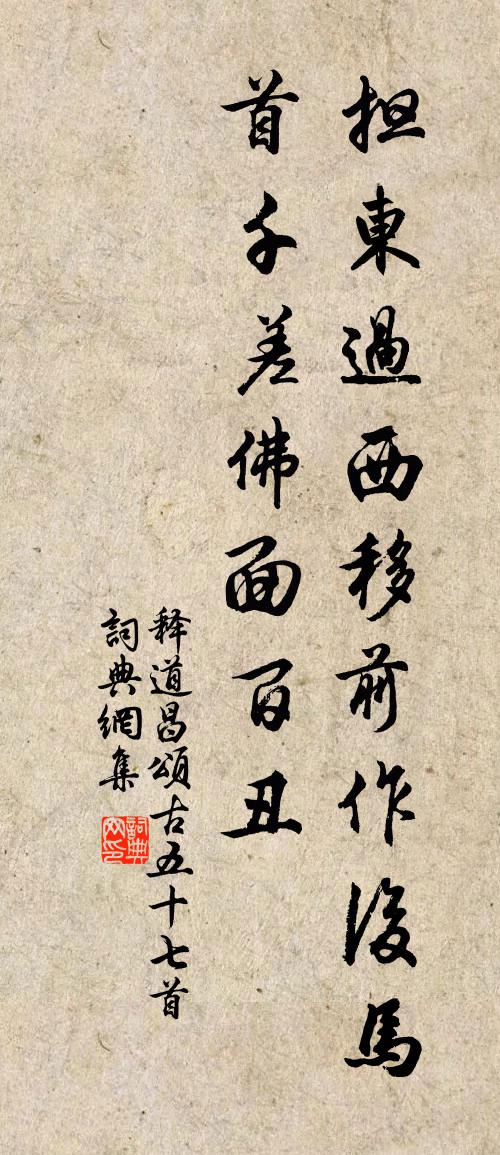 担東過西移前作後馬
首千差佛面百丑
释道昌頌古五十七首
詞典網集
詞典
网印